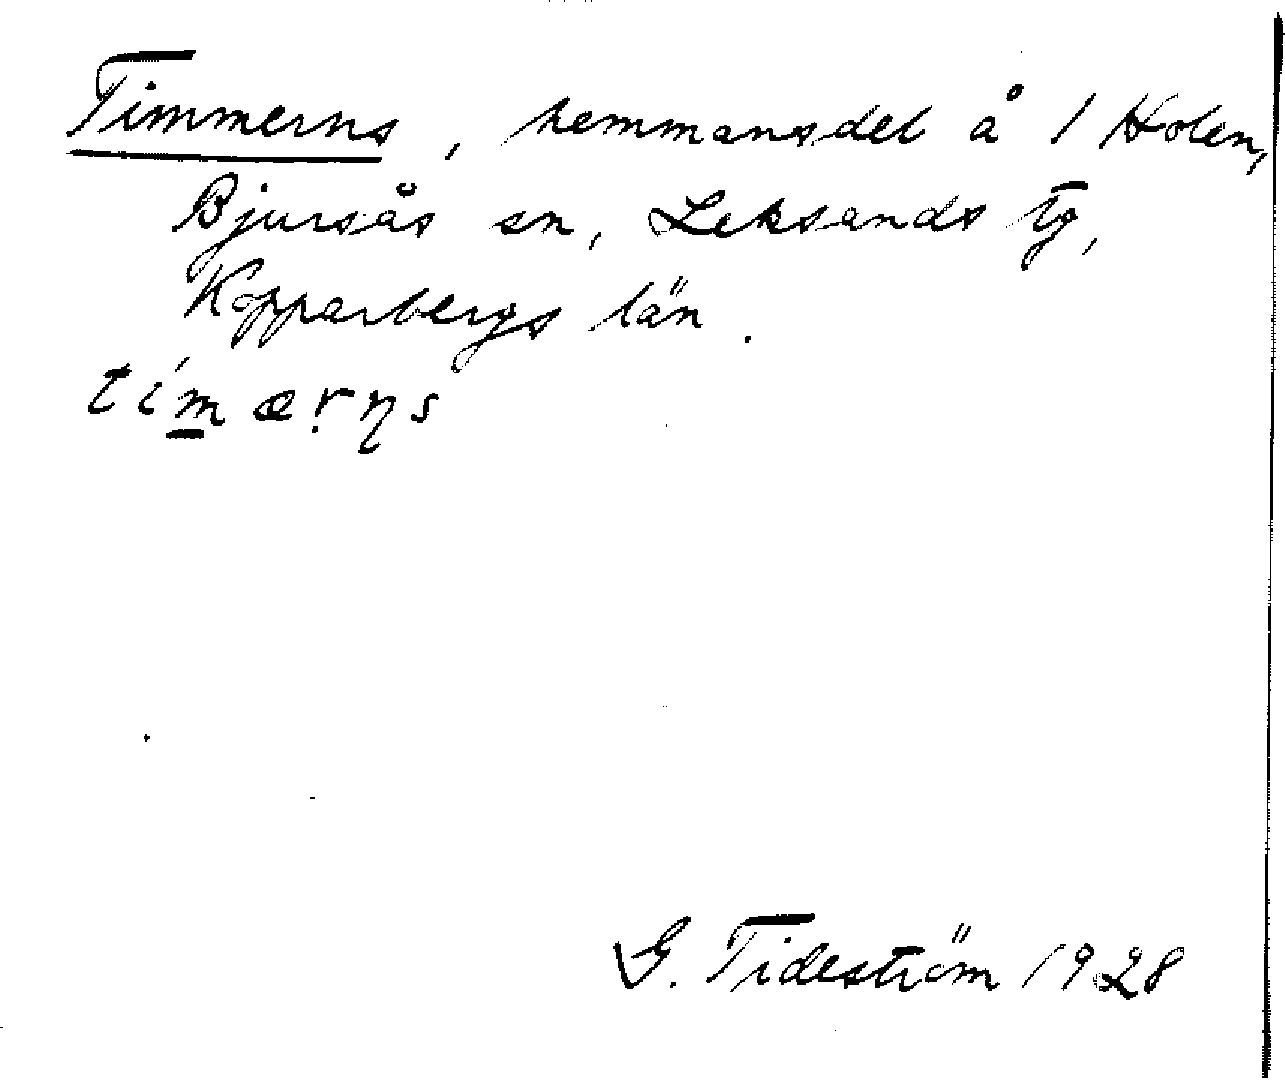 Timmerns, hemmansdel å 1 Holen,
Bjursås sn, Leksands tg,
Kopparbergs län.
tím̲æṛηs
G. Tideström 1928